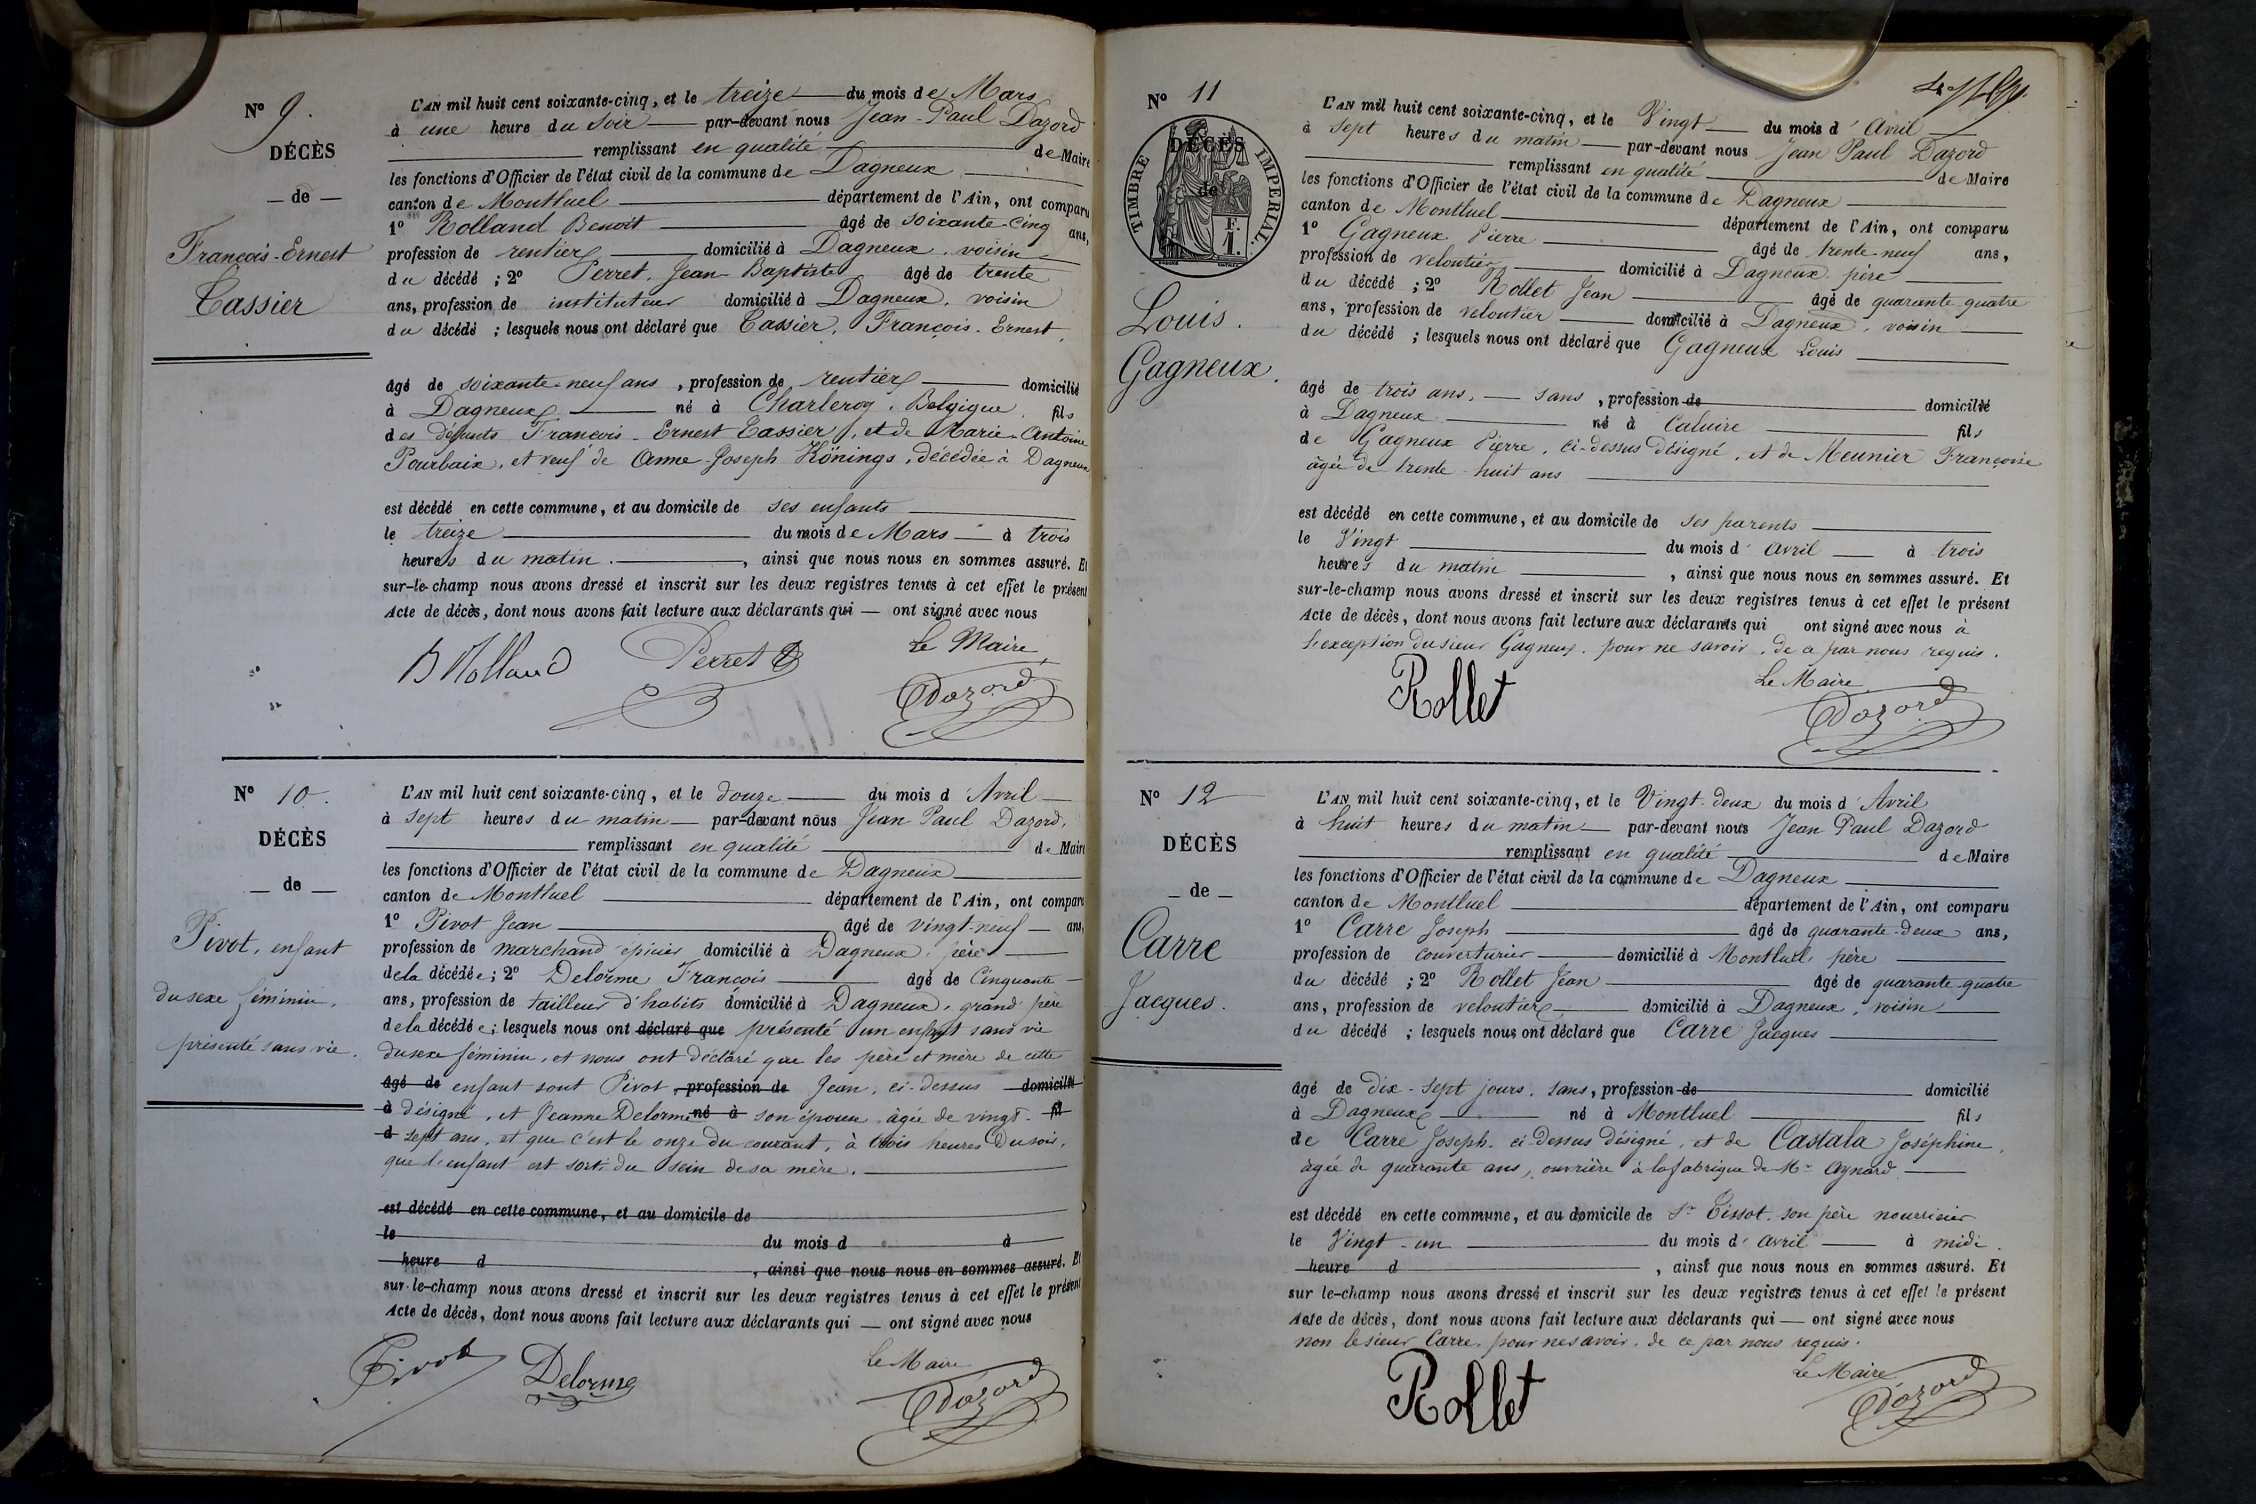 N° 9.
DÉCÈS
— de —
François-Ernest
Cassier
L'AN mil huit cent soixante-cinq, et le treize du mois de Mars
à une heure du soir par-devant nous Jean-Paul Dazord
remplissant en qualité de Maire
les fonctions d'Officier de l'état civil de la commune de Dagneux
canton de Montluel département de l'Ain, ont comparu
1° Rolland Benoit âgé de soixante-cinq ans,
profession de rentier domicilié à Dagneux, voisin
du décédé ; 2° Perret, Jean-Baptiste âgé de trente
ans, profession de instituteur domicilié à Dagneux, voisin
du décédé ; lesquels nous ont déclaré que Cassier, François-Ernest,
âgé de soixante-neuf ans, profession de rentier domicilié
à Dagneux né à Charleroy, Belgique, fils
des défunts François-Ernest Cassier, et de Marie-Antoine
Pourbaix, et veuf de Anne-Joseph Könings, décédée à Dagneux
est décédé en cette commune, et au domicile de ses enfants
le treize du mois de Mars à trois
heures du matin, ainsi que nous nous en sommes assuré. Et
sur-le-champ nous avons dressé et inscrit sur les deux registres tenus à cet effet le présent
Acte de décès, dont nous avons fait lecture aux déclarants qui — ont signé avec nous
Le Maire
B Rolland Perret B Dazord
N° 10.
DÉCÈS
— de —
Pivot, enfant
du sexe féminin,
présenté sans vie.
L'AN mil huit cent soixante-cinq, et le douze du mois d'Avril
à sept heures du matin par-devant nous Jean Paul Dazord,
remplissant en qualité de Maire
les fonctions d'Officier de l'état civil de la commune de Dagneux
canton de Montluel département de l'Ain, ont comparu
1° Pivot Jean âgé de vingt-neuf ans,
profession de marchand épicier domicilié à Dagneux, père
de la décédée; 2° Delorme François âgé de Cinquante
ans, profession de tailleur d'habits domicilié à Dagneux, grand père
de la décédée; lesquels nous ont déclaré que présenté un enfant sans vie
du sexe féminin, et nous ont déclaré que les père et mère de cette
âgé de enfant sont Pivot, profession de Jean, ci-dessus domicilié
à désigné, et Jeanne Delorme né à son épouse, âgée de vingt- fil
d sept ans, et que c'est le onze du courant, à trois heures du soir,
que l'enfant est sorti du sein de sa mère.
est décédé en cette commune, et au domicile de
le du mois d à
heure d , ainsi que nous nous en sommes assuré. Et
sur-le-champ nous avons dressé et inscrit sur les deux registres tenus à cet effet le présent
Acte de décès, dont nous avons fait lecture aux déclarants qui — ont signé avec nous
Le Maire
Pivot Delorme Dazord
N° 11
TIMBRE IMPERIAL
DÉCÈS
de
F.
1.
Louis.
Gagneux.
L'AN mil huit cent soixante-cinq, et le Vingt du mois d'Avril
à sept heures du matin par-devant nous Jean Paul Dazord
remplissant en qualité de Maire
les fonctions d'Officier de l'état civil de la commune de Dagneux
canton de Montluel département de l'Ain, ont comparu
1° Gagneux Pierre âgé de trente-neuf ans,
profession de veloutier domicilié à Dagneux père
du décédé ; 2° Rollet Jean âgé de quarante-quatre
ans, profession de veloutier domicilié à Dagneux, voisin
du décédé ; lesquels nous ont déclaré que Gagneux Louis
âgé de trois ans, — sans, profession de domicilié
à Dagneux né à Caluire fils
de Gagneux Pierre, ci-dessus désigné, et de Meunier Françoise
âgée de trente-huit ans
est décédé en cette commune, et au domicile de ses parents
le Vingt du mois d'Avril à trois
heures du matin, ainsi que nous nous en sommes assuré. Et
sur-le-champ nous avons dressé et inscrit sur les deux registres tenus à cet effet le présent
Acte de décès, dont nous avons fait lecture aux déclarants qui ont signé avec nous à
l'exception du sieur Gagneux, pour ne savoir, de ce par nous requis.
Le Maire
Rollet Dazord
N° 12
DÉCÈS
— de —
Carre
Jacques.
L'AN mil huit cent soixante-cinq, et le Vingt-deux du mois d'Avril
à huit heures du matin par-devant nous Jean Paul Dazord
remplissant en qualité de Maire
les fonctions d'Officier de l'état civil de la commune de Dagneux
canton de Montluel département de l'Ain, ont comparu
1° Carre Joseph âgé de quarante-deux ans,
profession de couverturier domicilié à Montluel, père
du décédé ; 2° Rollet Jean âgé de quarante-quatre
ans, profession de veloutier domicilié à Dagneux, voisin
du décédé ; lesquels nous ont déclaré que Carre Jacques
âgé de dix-sept jours, sans, profession de domicilié
à Dagneux né à Montluel fils
de Carre Joseph, ci-dessus désigné, et de Castala Joséphine,
âgée de quarante ans, ouvrière à la fabrique de Mr Aynard
est décédé en cette commune, et au domicile de Sr Tissot, son père nourricier
le Vingt-un du mois d'Avril à midi.
heure d , ainsi que nous nous en sommes assuré. Et
sur le-champ nous avons dressé et inscrit sur les deux registres tenus à cet effet le présent
Acte de décès, dont nous avons fait lecture aux déclarants qui — ont signé avec nous
non le sieur Carre, pour ne savoir, de ce par nous requis.
Le Maire
Rollet Dazord